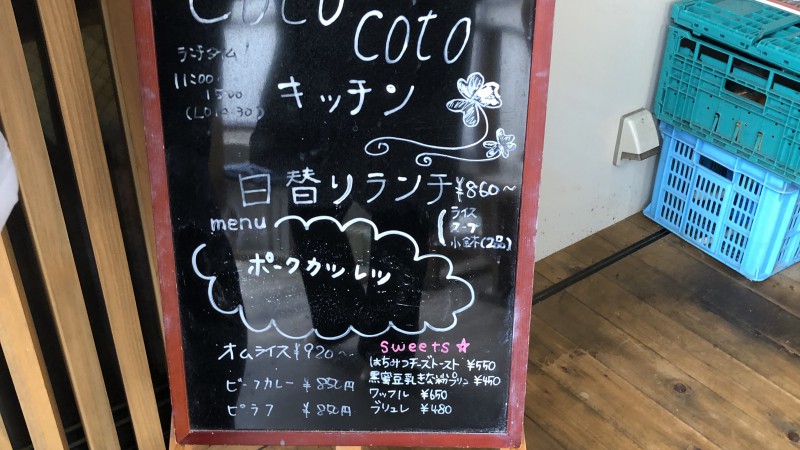 coco
coto
ランチタイム
11:00〜
1500
キッチン
日替りランチ ¥860〜
ライス
スープ
小鉢(2品)
menu
ポークカツレツ
オムライス ¥920〜
ビーフカレー ¥850円
ピラフ ¥850円
sweets☆
はちみつチーズトースト ¥550
黒蜜豆乳きな粉プリン ¥450
ワッフル ¥650
ブリュレ ¥480